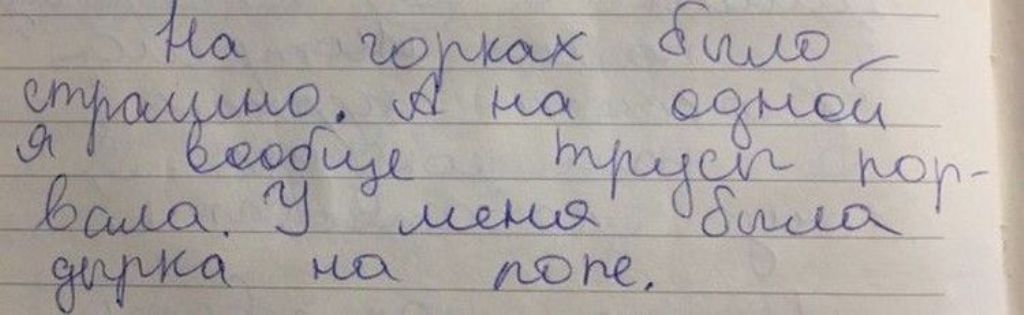 На горках было
страшно. А на одной
я вообще трусы пор-
вала. У меня была
дырка на попе.